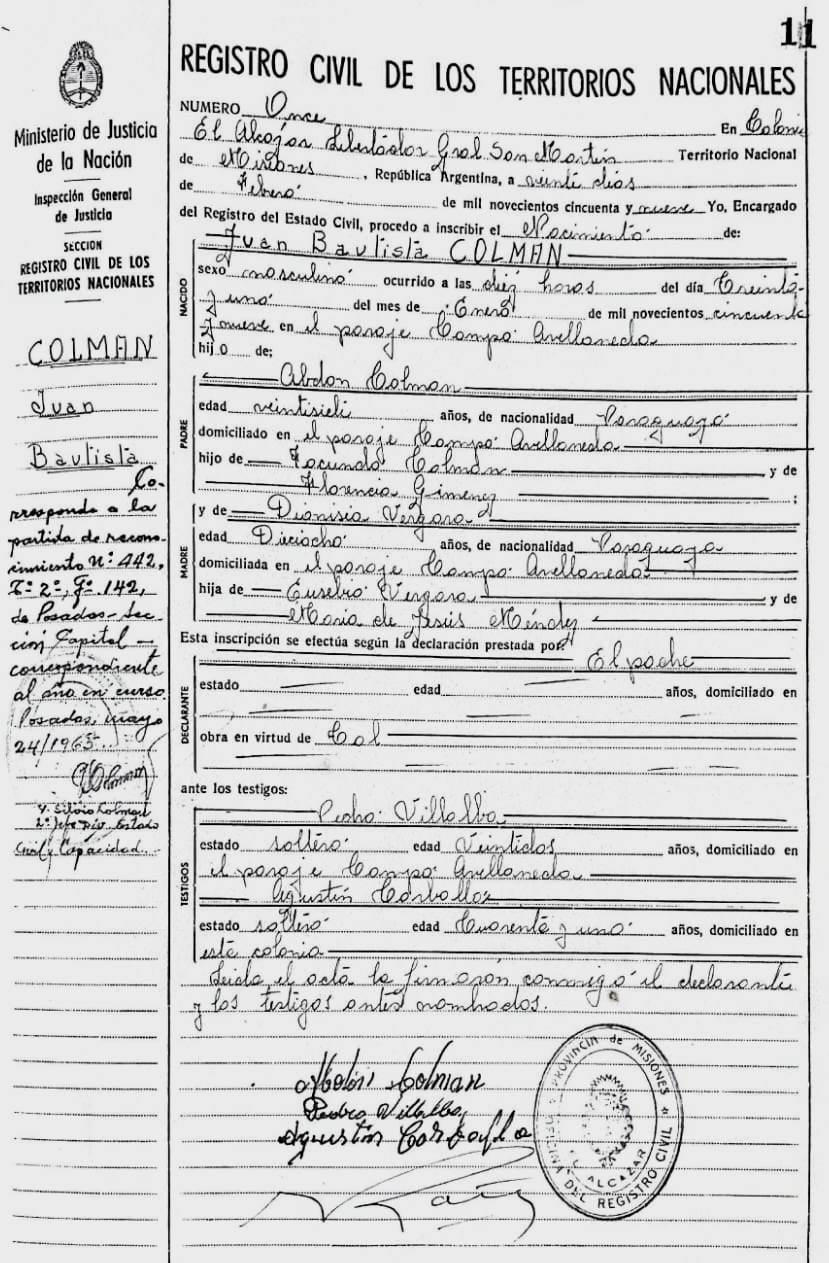 11
Ministerio de Justicia
de la Nación
Inspección General
de Justicia
SECCION
REGISTRO CIVIL DE LOS
TERRITORIOS NACIONALES
COLMAN
Juan
Bautista
Co-
rresponde a la
partida de recono-
cimiento Nº: 442,
Tº 2º, Fº 142,
de Posadas - Sec
ción Capital -
correspondiente
al año en curso.
Posadas, mayo
24/1965.
Silvio Colman
2º Jefe Div. Estado
Civil y Capacidad.
REGISTRO CIVIL DE LOS TERRITORIOS NACIONALES
NUMERO Once En Colonia
El Alcazar Libertador Gral San Martin Territorio Nacional
de Misiones, República Argentina, a veinte dias
de Febrero de mil novecientos cincuenta y nueve Yo, Encargado
del Registro del Estado Civil, procedo a inscribir el Nacimiento de:
Juan Bautista COLMAN
NACIDO
sexo masculino ocurrido a las diez horas del día Treinta
y uno del mes de Enero de mil novecientos cincuenta
y nueve en el paraje Campo Avellaneda
hijo de:
PADRE
Abdon Colman
edad veintisiete años, de nacionalidad Paraguayo
domiciliado en el paraje Campo Avellaneda
hijo de Facundo Colmán y de
Florencia Gimenez ;
MADRE
y de Dionisia Vergara
edad Dieciocho años, de nacionalidad Paraguaya
domiciliada en el paraje Campo Avellaneda
hija de Eusebio Vergara y de
Maria de Jesús Méndez
Esta inscripción se efectúa según la declaración prestada por: El padre
DECLARANTE
estado edad años, domiciliado en
obra en virtud de Cal
ante los testigos:
TESTIGOS
Pedro Villalba
estado soltero edad Veintidos años, domiciliado en
el paraje Campo Avellaneda
Agustin Carballoz
estado soltero edad Cuarenta y uno años, domiciliado en
esta colonia
Leida el acta la firmaron conmigo el declarante
y los testigos antes nombrados.
Abdon Colman
Pedro Villalba
Agustin
PROVINCIA de MISIONES
OFICINA DEL REGISTRO CIVIL
EL ALCAZAR